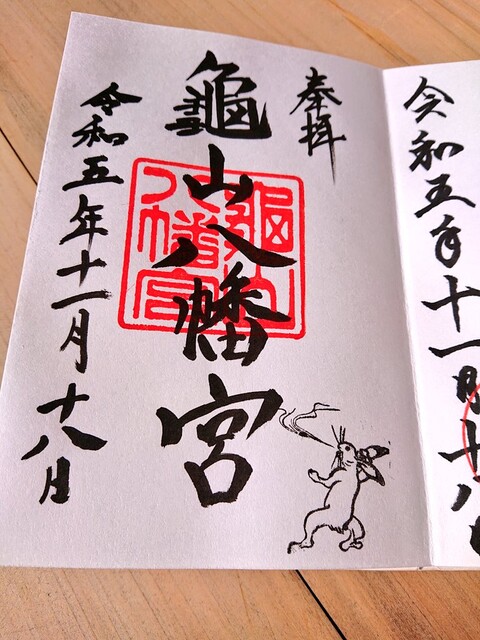 令和五年十一月十八日
奉拝
龜山八幡宮
龜山八幡宮
令和五年十一月十八日